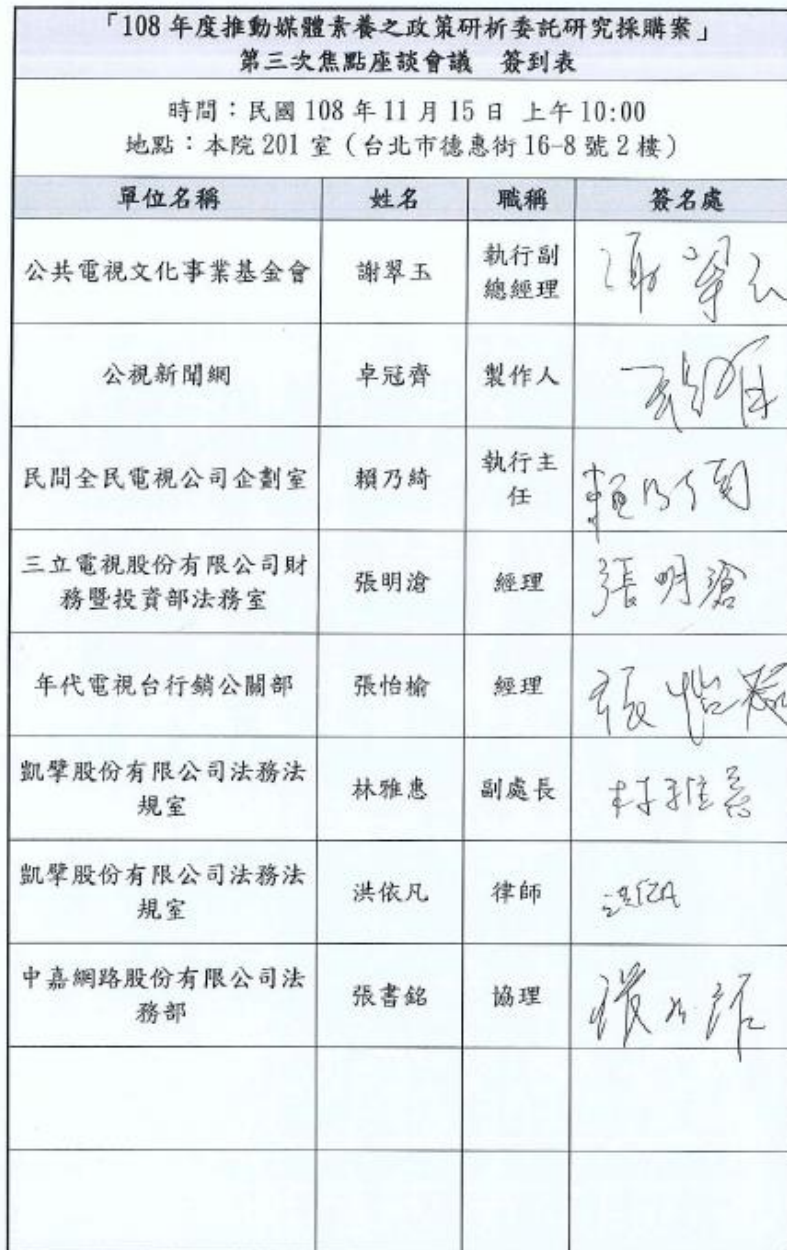 「108 年度推動媒體素養之政策研析委託研究採購案」
第三次焦點座談會議 簽到表
時間：民國 108 年 11 月 15 日 上午 10:00
地點：本院 201 室（台北市德惠街 16-8 號 2 樓）
單位名稱 姓名 職稱 簽名處
公共電視文化事業基金會 謝翠玉 執行副
總經理 謝翠玉
公視新聞網 卓冠齊 製作人
民間全民電視公司企劃室 賴乃綺 執行主
任 賴乃綺
三立電視股份有限公司財
務暨投資部法務室 張明滄 經理 張明滄
年代電視台行銷公關部 張怡榆 經理 張怡榆
凱擘股份有限公司法務法
規室 林雅惠 副處長 林雅惠
凱擘股份有限公司法務法
規室 洪依凡 律師 洪依凡
中嘉網路股份有限公司法
務部 張書銘 協理 張書銘